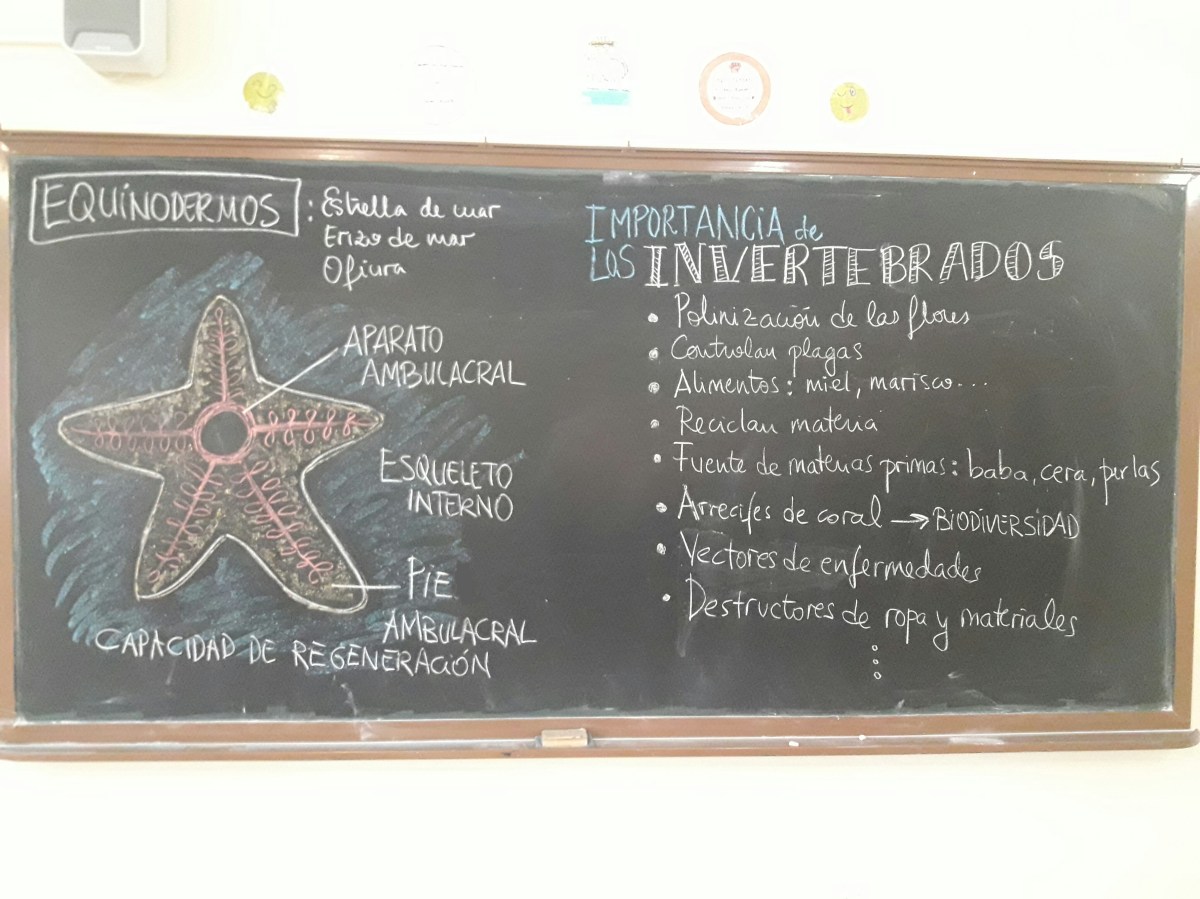 EQUINODERMOS : Estrella de mar
Erizo de mar
Ofiura
APARATO
AMBULACRAL
ESQUELETO
INTERNO
PIE
AMBULACRAL
CAPACIDAD DE REGENERACIÓN
IMPORTANCIA de
LOS INVERTEBRADOS
• Polinización de las flores
• Controlan plagas
• Alimentos: miel, marisco...
• Reciclan materia
• Fuente de materias primas: baba, cera, perlas
• Arrecifes de coral → BIODIVERSIDAD
• Vectores de enfermedades
• Destructores de ropa y materiales